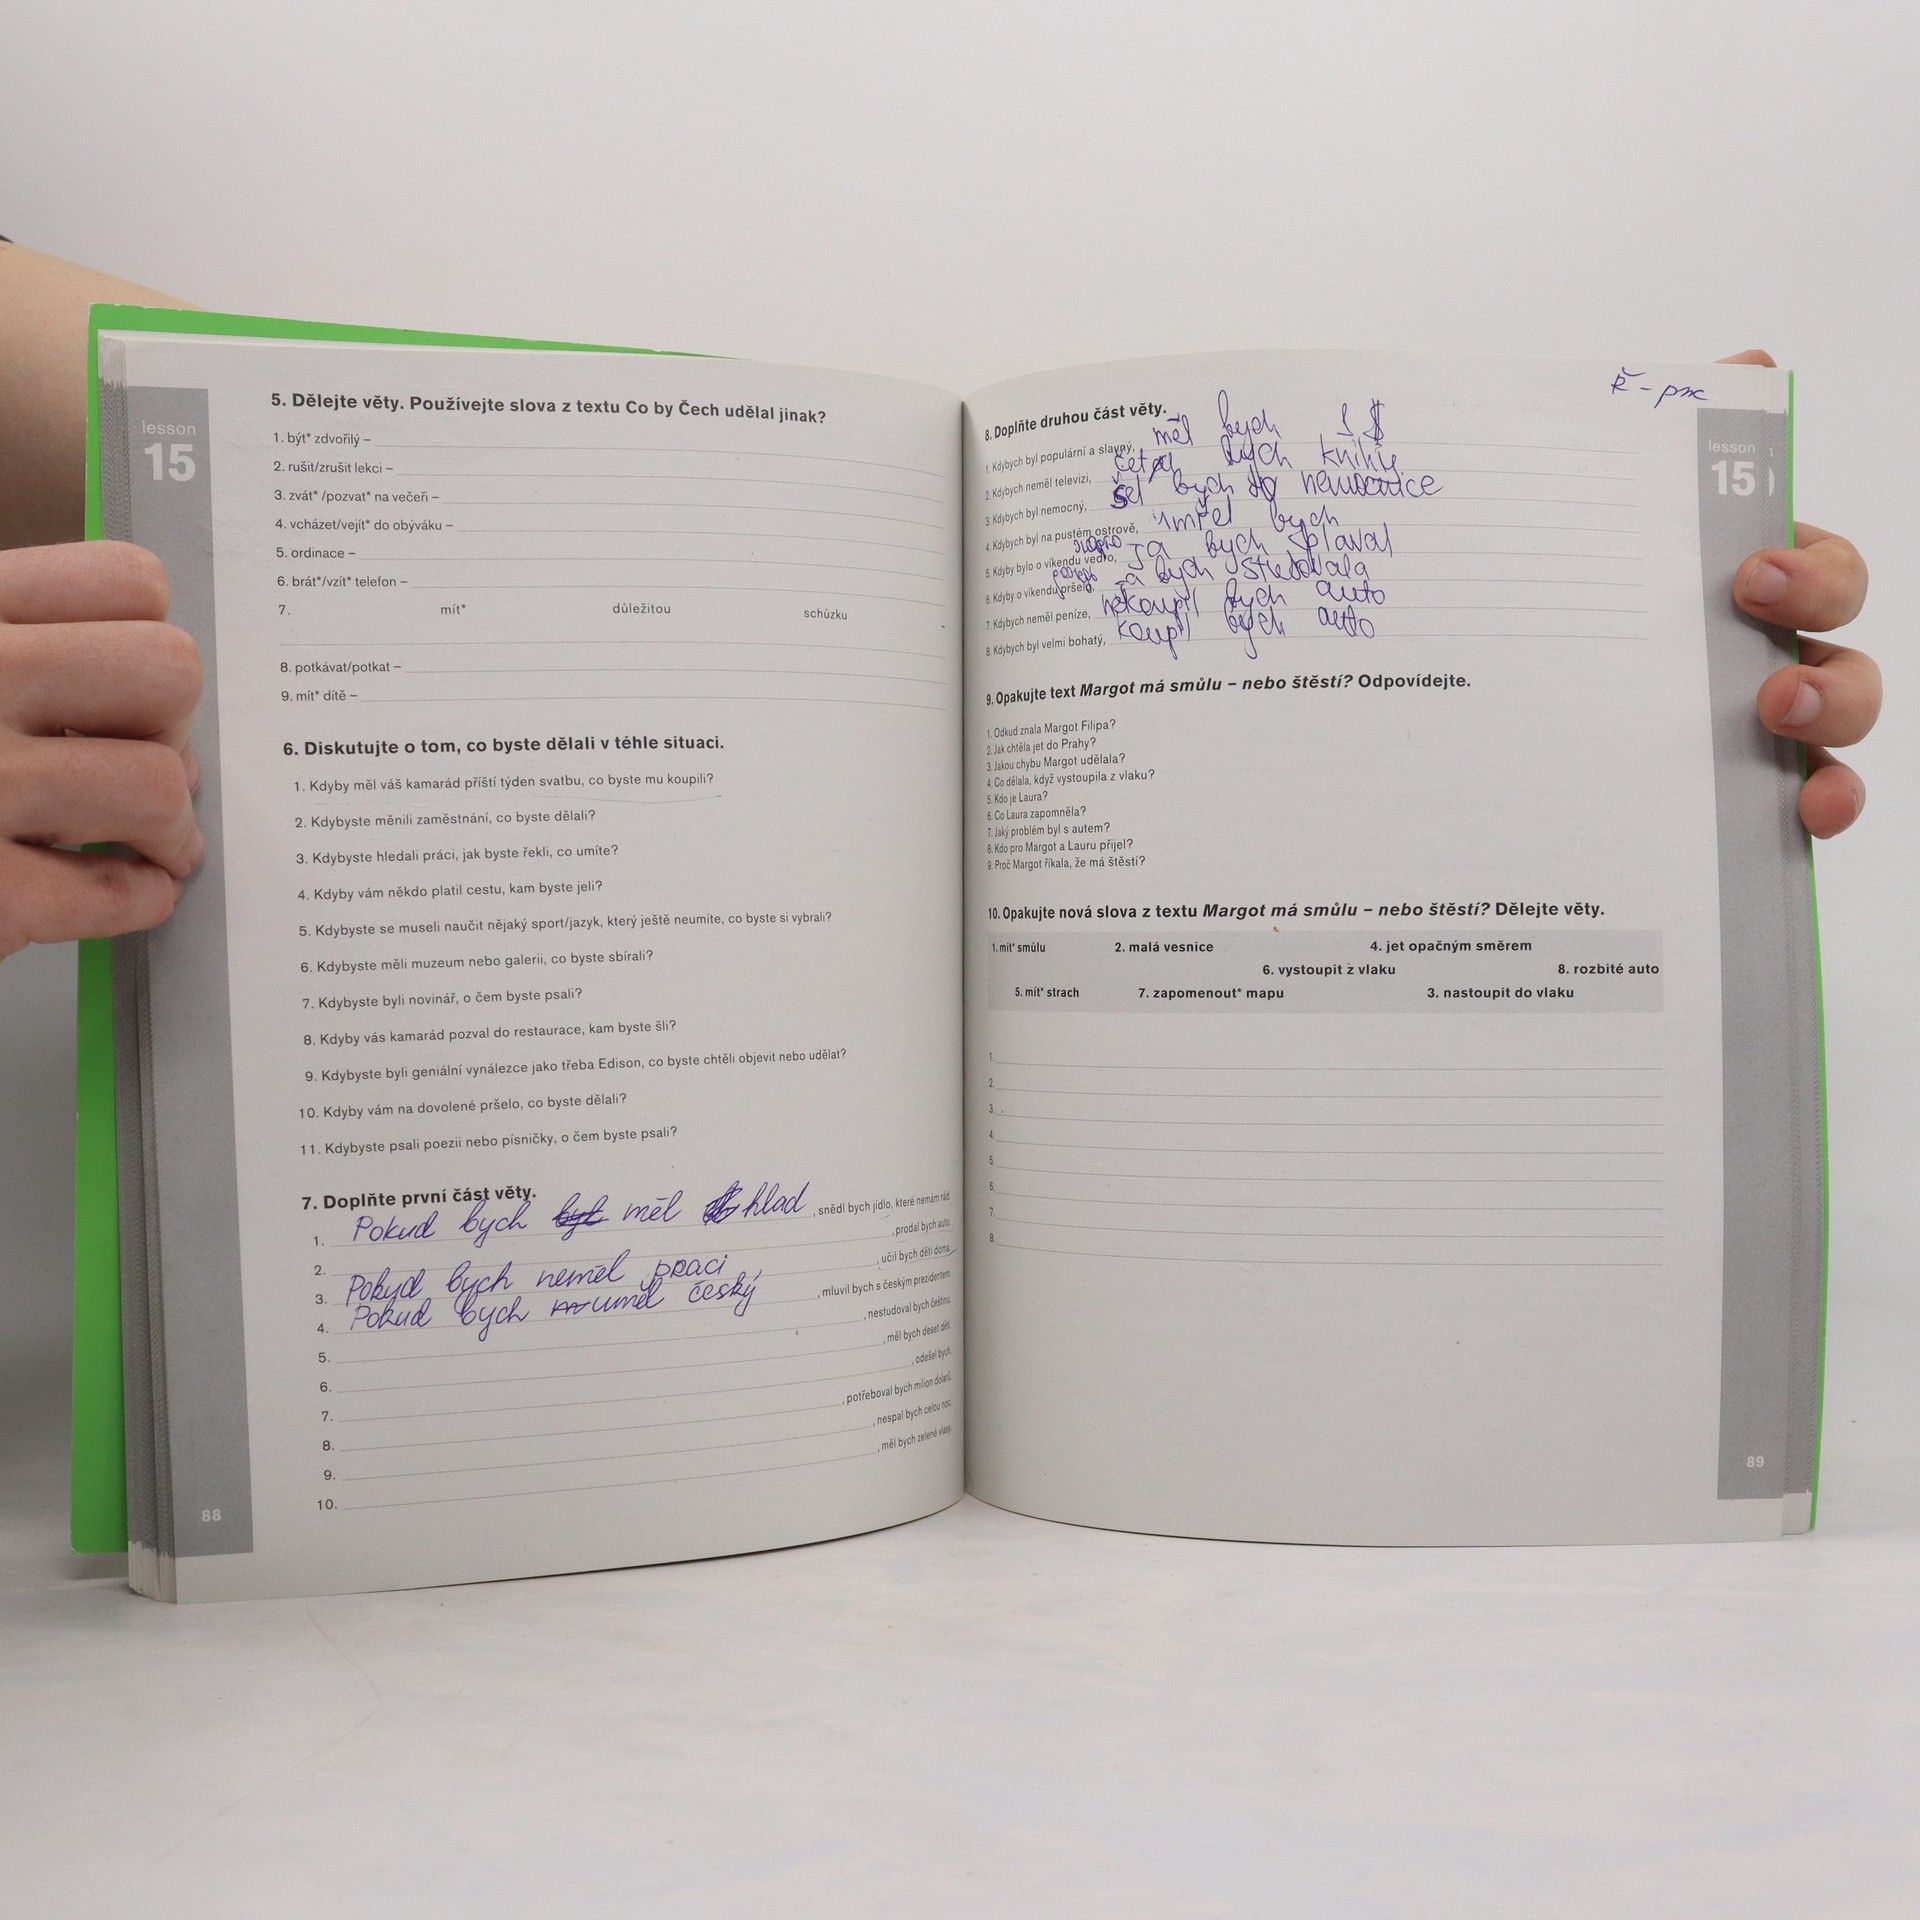 lesson
15
5. Dělejte věty. Používejte slova z textu Co by Čech udělal jinak?
1. být* zdvořilý –
2. rušit/zrušit lekci –
3. zvát* /pozvat* na večeři –
4. vcházet/vejít* do obýváku –
5. ordinace –
6. brát*/vzít* telefon –
7. mít* důležitou schůzku
8. potkávat/potkat –
9. mít* dítě –
6. Diskutujte o tom, co byste dělali v téhle situaci.
1. Kdyby měl váš kamarád příští týden svatbu, co byste mu koupili?
2. Kdybyste měnili zaměstnání, co byste dělali?
3. Kdybyste hledali práci, jak byste řekli, co umíte?
4. Kdyby vám někdo platil cestu, kam byste jeli?
5. Kdybyste se museli naučit nějaký sport/jazyk, který ještě neumíte, co byste si vybrali?
6. Kdybyste měli muzeum nebo galerii, co byste sbírali?
7. Kdybyste byli novinář, o čem byste psali?
8. Kdyby vás kamarád pozval do restaurace, kam byste šli?
9. Kdybyste byli geniální vynálezce jako třeba Edison, co byste chtěli objevit nebo udělat?
10. Kdyby vám na dovolené pršelo, co byste dělali?
11. Kdybyste psali poezii nebo písničky, o čem byste psali?
7. Doplňte první část věty.
1. Pokud bych byt měl hlad , snědl bych jídlo, které nemám rád.
2. , prodal bych auto.
3. Pokyd bych neměl praci , učil bych děti doma.
4. Pokud bych uměl český , mluvil bych s českým prezidentem.
5. , nestudoval bych češtinu.
6. , měl bych deset dětí.
7. , odešel bych.
8. , potřeboval bych milion dolarů.
9. , nespal bych celou noc.
10. , měl bych zelené vlasy.
88
lesson
15
8. Doplňte druhou část věty.
1. Kdybych byl populární a slavný, měl bych $
2. Kdybych neměl televizi, bych knihy
3. Kdybych byl nemocný, šel bych do nemocnice
4. Kdybych byl na pustém ostrově, umřel bych
5. Kdyby bylo o víkendu vedro, ja bych plaval
6. Kdyby o víkendu pršelo, bych
7. Kdybych neměl peníze, nekoupil bych auto
8. Kdybych byl velmi bohatý, koupil bych auto
9. Opakujte text Margot má smůlu – nebo štěstí? Odpovídejte.
1. Odkud znala Margot Filipa?
2. Jak chtěla jet do Prahy?
3. Jakou chybu Margot udělala?
4. Co dělala, když vystoupila z vlaku?
5. Kdo je Laura?
6. Co Laura zapomněla?
7. Jaký problém byl s autem?
8. Kdo pro Margot a Lauru přijel?
9. Proč Margot říkala, že má štěstí?
10. Opakujte nová slova z textu Margot má smůlu – nebo štěstí? Dělejte věty.
1. mít* smůlu 2. malá vesnice 4. jet opačným směrem
6. vystoupit z vlaku 8. rozbité auto
5. mít* strach 7. zapomenout* mapu 3. nastoupit do vlaku
1.
2.
3.
4.
5.
6.
7.
8.
89